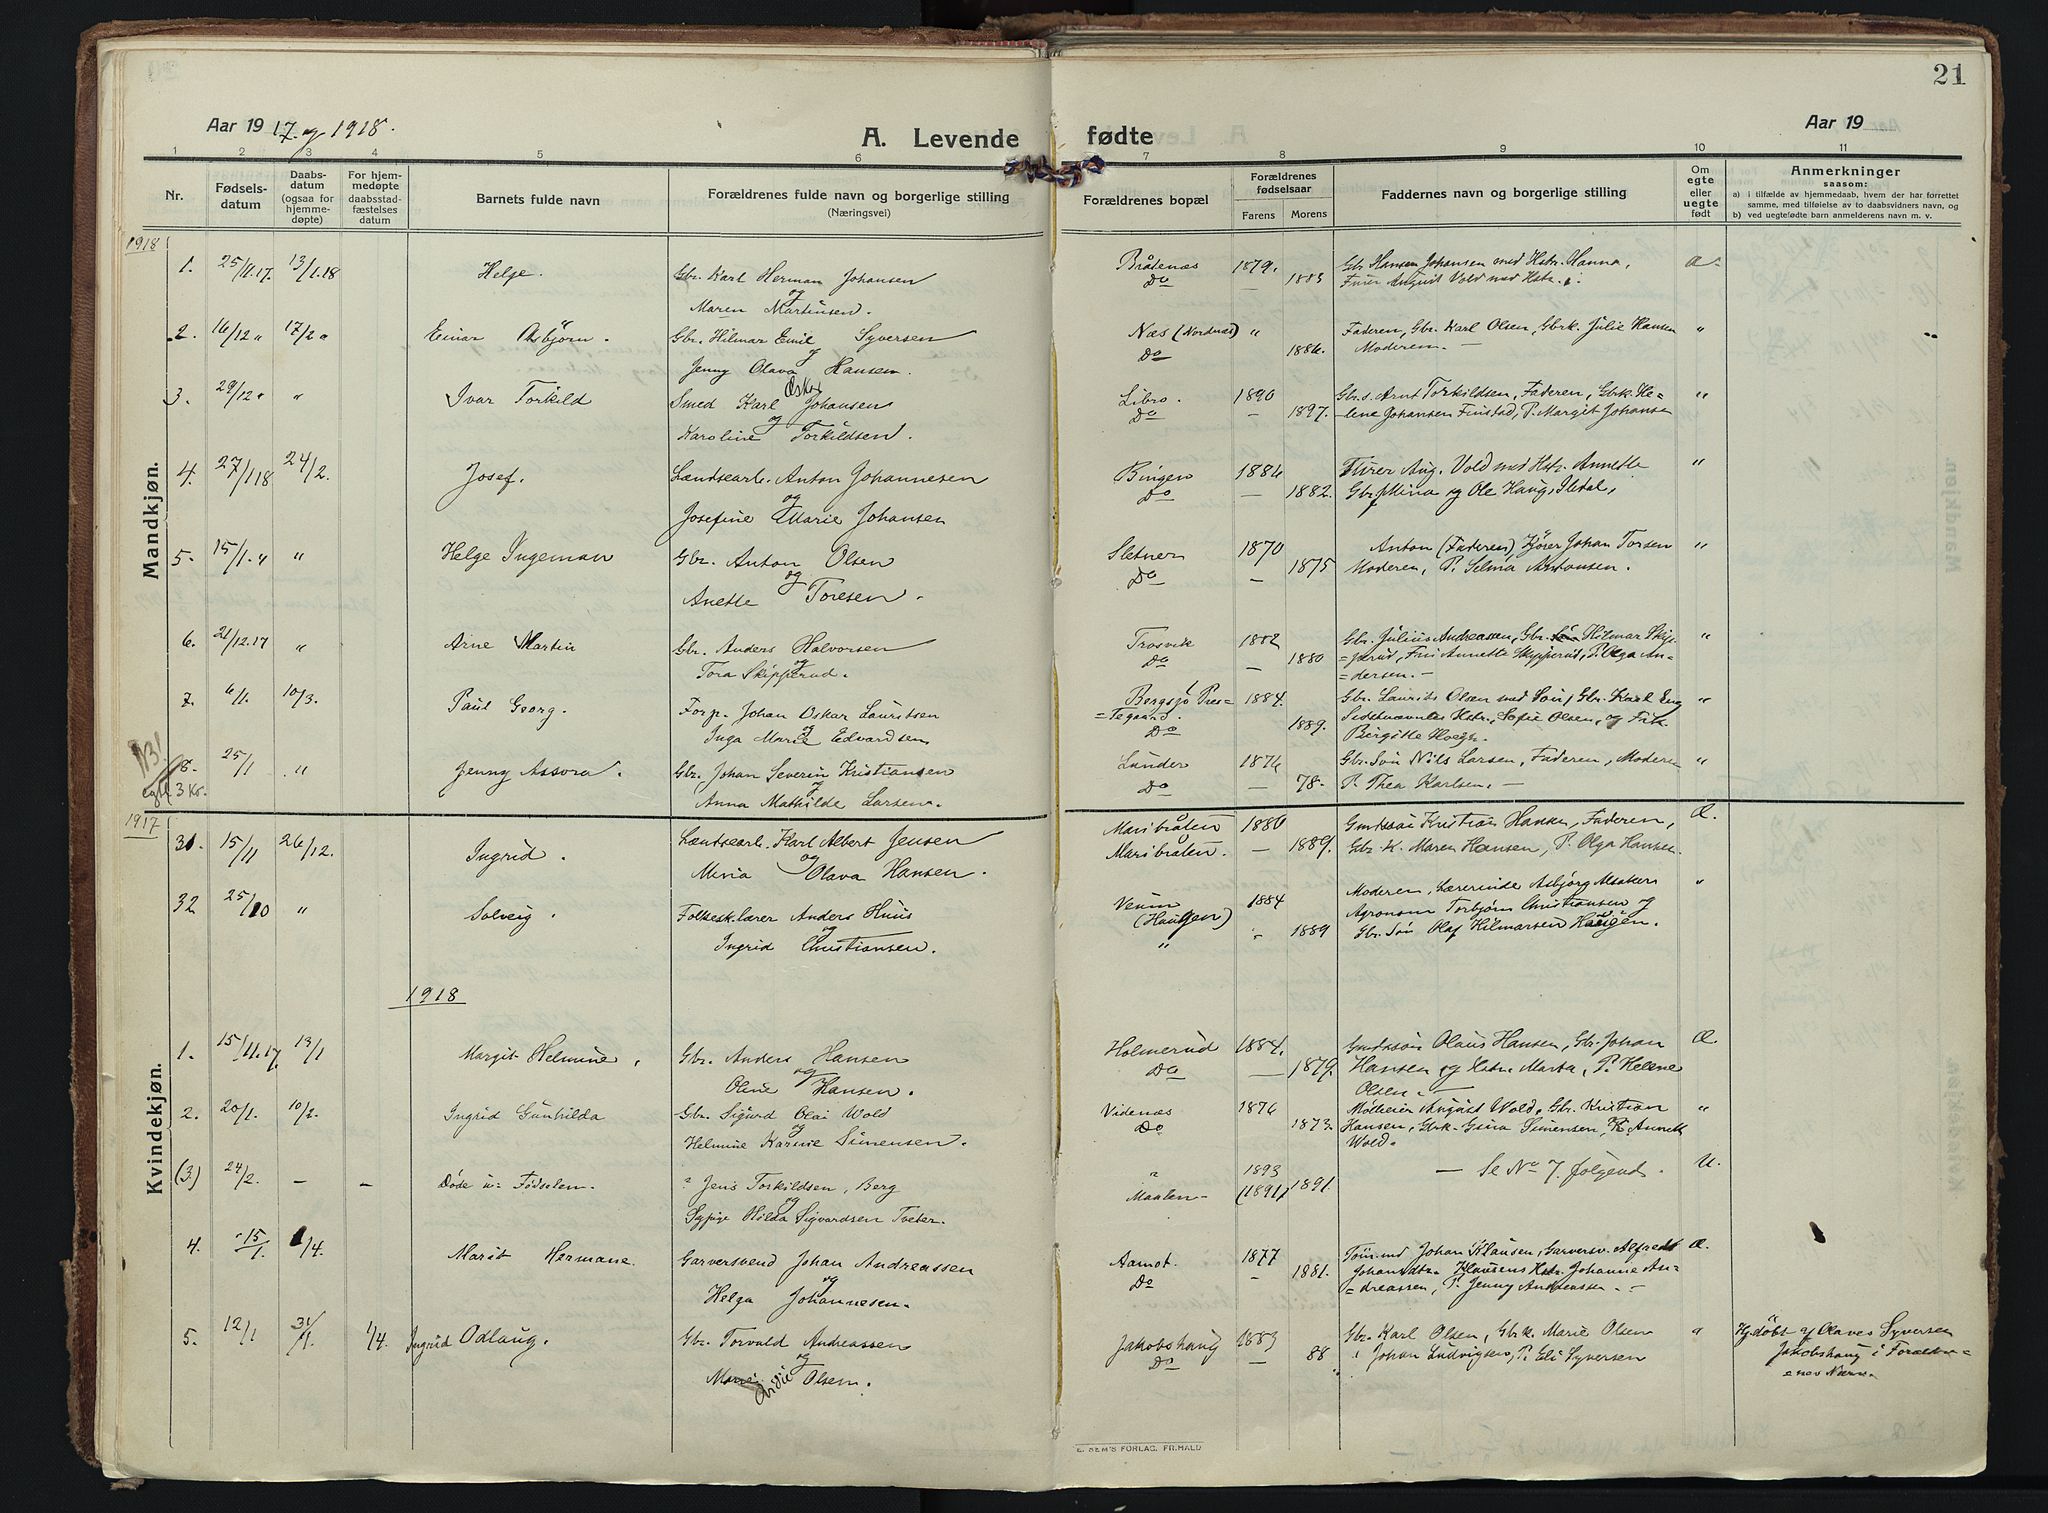 21
Aar 1917 og 1918.
A. Levende fødte
Aar 19
1 2 3 4 5 6 7 8 9 10 11
Nr.
Fødsels-
datum
Daabs-
datum
(ogsaa for
hjemme-
døpte)
For hjem-
medøpte
daabsstad-
fæstelses
datum
Barnets fulde navn
Forældrenes fulde navn og borgerlige stilling
(Næringsvei)
Forældrenes bopæl
Forældrenes
fødselsaar
Farens
Morens
Faddernes navn og borgerlige stilling
Om
egte
eller
uegte
født
Anmerkninger
saasom:
a) i tilfælde av hjemmedaab, hvem der har forrettet
samme, med tilføielse av to daabsvidners navn, og
b) ved uegtefødte barn anmelderens navn m. v.
Mandkjøn.
1918
1. 25/11.17. 13/1.18 Helge. Gbr. Karl Herman Johansen Bråtenæs 1879. Gbr. Hansen Johansen med Hstr. Hanna, Æ.
og Do — 1883 Furer August Vold med Hstr.
Maren Martinsen.
2. 16/12 " 17/2 " Einar Asbjörn. Gbr. Hilmar Emil Syversen Næs (Nordnæs) " Faderen, Gbr. Karl Olsen, Gbrk. Julie Hansen "
og Do 1886. Moderen. —
Jenny Olava Hansen.
3. 29/12 " " Ivar Torkild Smed Karl Oskar Johansen Libro. 1890 Gbr.s. Arnt Torkildsen, Faderen, Gbrk. He- "
og Do — 1897. =lene Johansen Finstad, P. Margit Johansen
Karoline Torkildsen.
4. 27/1 18 24/2. Josef. Landsearb. Anton Johannesen Bingen 1886 Furer Aug. Vold med Hstr. Annette "
og Do — 1882. Gbrf Mina og Ole Haug, Sletal,
Josefine Marie Johansen
5. 15/1. " " Helge Ingeman Gbr. Anton Olsen Sletner 1870 Anton (Faderen), Kjörer Johan Torsen "
og Do — 1875 Moderen, P. Selma Antonsen.
Anette Toresen.
6. 21/12.17 " Arne Martin Gbr. Anders Halvorsen Trosvik 1882 Gbr. Julius Andreassen, Gbr. Hilmar Skip- "
og Do — 1880 =perud, Fru Annette Skipperud, P. Olga An=
Tora Skipperud. =dersen. —
7. 6/1. 10/3. Paul Georg. Forp. Johan Oskar Lauritsen Bergsjö Pres= 1884. Gbr. Laurits Olsen med Son, Gbr. Karl Eng "
og =tegaard. 1889. Sidstnævntes Hstr., Sofie Olsen, og Frk.
Inga Marie Edvardsen Do Birgitte Hoegh.
8. 25/1 " Jenny Assora. Gbr. Johan Severin Kristiansen Lunder 1876 Gbr. Sön Nils Larsen, Faderen, Moderen "
3 Kr. og Do 78. P. Thea Karlsen. —
Anna Mathilde Larsen.
Kvindekjøn.
1917
31. 15/11 26/12. Ingrid. Landsearb. Karl Albert Jensen Maribråten 1880 Gmdssön Kristian Hansen, Faderen, Æ.
og Maribråten. — 1889. Gbr. K. Maren Hansen, P. Olga Hansen.
Mina Olava Hansen.
32 25/10 " Solveig. Folkesklærer Anders Huus Venim 1884 Moderen, Lærerinde Asbjörg Alsaker "
og (Haugen) Agronom Torbjörn Christiansen og
Ingrid Christiansen. " - 1889 Gbr. Sön Olaf Hilmarsen Haugen.
1918
1. 15/11.17. 13/1 Margit Helmine, Gbr. Anders Hansen Holmerud 1884. Gmdssön Olaus Hansen, Gbr. Johan Æ.
og Do — 1879. Hansen og Hstr. Marta, P. Helene
Oline Hansen. Olsen. —
2. 20/1. 10/2. Ingrid Gunhilda Gbr. Sigurd Olai Wold Videnæs 1876 Mölleier August Wold, Gbr. Kristian "
og Do 1873. Hansen, Gbrk. Gina Simensen, K. Annette
Helmine Karine Simensen. Wold.
(3.) 24/2. — — Döde u. Födselen. " Jens Torkildsen, Berg " 1893 — Se No 7. følgende. U.
og Maalen — (1891) 1891.
Sypige Hilda Sigvardsen Tveter.
4. 15/1. 1/4. Marit Hermane. Garversvend Johan Andreassen Aamot. 1877 Tömmd Johan Klausen, Garversv. Alfred Æ.
og Do — 1881. Johansdtr. Klausens Hstr. Johanne An=
Helga Johannesen. =dreassen, P. Jenny Andreassen. —
5. 12/1 31/1. 1/4. Ingrid Odlaug. Gbr. Torvald Andreassen Jakobshaug 1883 Gbr. Karl Olsen, Gbrk. Marie Olsen " Hjdöbt af Olaves Syversen
og Do — 88 Johan Ludvigsen, P. Eli Syversen Jakobshaug i Forældr=
Olsen. enes Nærv.
E. SEM'S FORLAG, FR.HALD